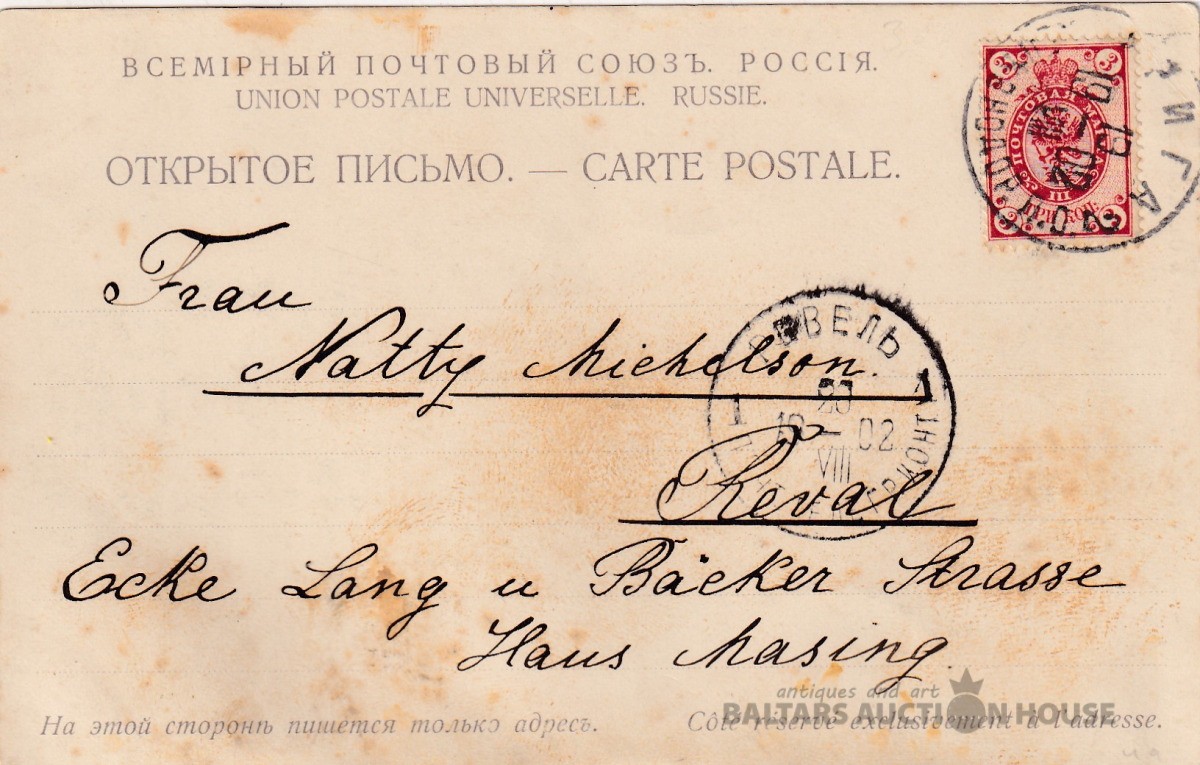 ВСЕМІРНЫЙ ПОЧТОВЫЙ СОЮЗЪ. РОССІЯ.
UNION POSTALE UNIVERSELLE. RUSSIE.
ОТКРЫТОЕ ПИСЬМО. — CARTE POSTALE.
3 3
ПОЧТОВАЯ МАРКА
III
ТРИ КОП.
3 3
РИГА
Frau
Natty Michelson.
РЕВЕЛЬ
1 1
02
VIII
Reval
Ecke Lang u Bäcker Strasse
Haus Masing.
antiques and art
BALTARS AUCTION HOUSE
На этой сторонѣ пишется только адресъ.
Côté réservé exclusivement à l'adresse.